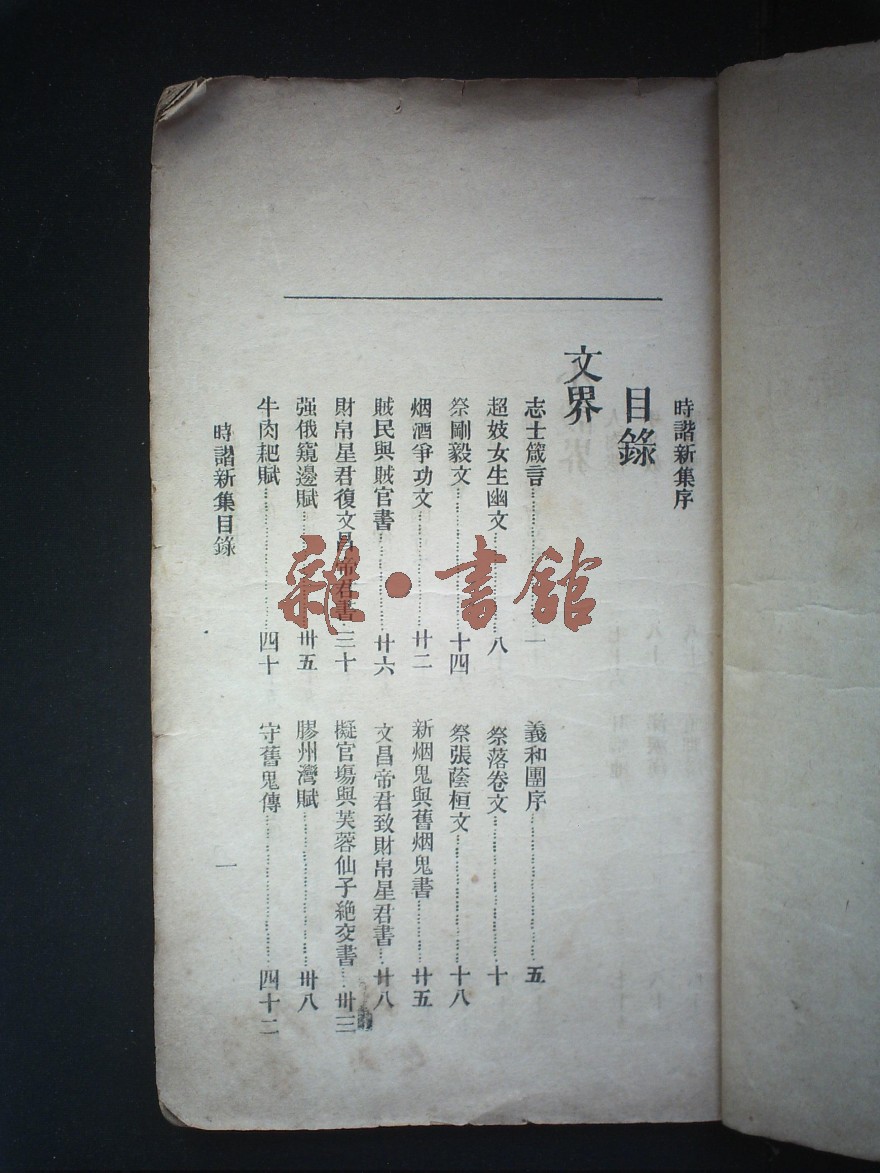 時諧新集序
目錄
文界
志士箴言…………一
義和團序…………五
超妓女生幽文…………八
祭落卷文…………十
祭剛毅文…………十四
祭張蔭桓文…………十八
烟酒爭功文…………廿二
新烟鬼與舊烟鬼書…………廿五
賊民與賊官書…………廿六
文昌帝君致財帛星君書…廿八
財帛星君復文昌帝君書…三十
擬官塲與芙蓉仙子絶交書…卅三
强俄窺邊賦…………卅五
膠州灣賦…………卅八
牛肉耙賦…………四十
守舊鬼傳…………四十二
時諧新集目錄
一
雜·書館